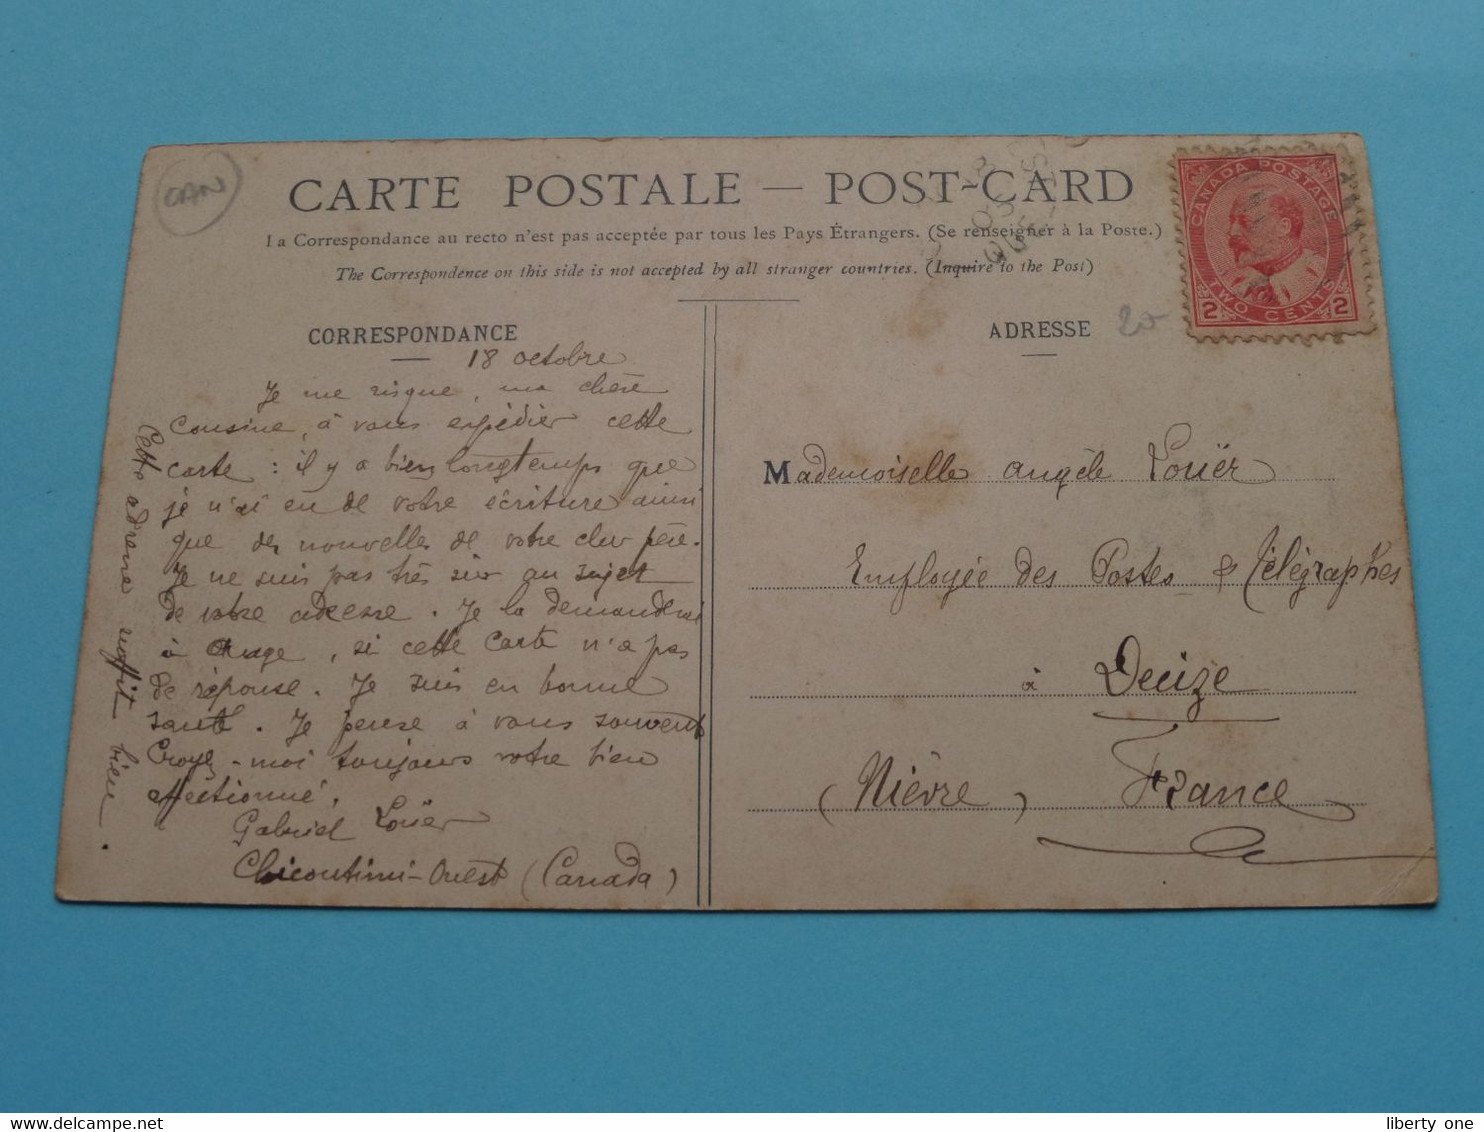 CAN
CARTE POSTALE — POST-CARD
La Correspondance au recto n'est pas acceptée par tous les Pays Étrangers. (Se renseigner à la Poste.)
The Correspondence on this side is not accepted by all stranger countries. (Inquire to the Post)
CANADA POSTAGE
2 TWO CENTS 2
CORRESPONDANCE
18 octobre
Je me risque, ma chère
cousine, à vous expédier cette
carte : il y a bien longtemps que
je n'ai eu de votre écriture ainsi
que des nouvelles de votre cher père.
Je ne suis pas très sûr au sujet
de votre adresse. Je la demanderai
à, si cette carte n'a pas
de réponse. Je suis en bonne
santé. Je pense à vous souvent
Croyez-moi toujours votre bien
affectionné.
Gabriel Louër
Chicoutimi-Ouest (Canada)
Cette adresse suffit bien.
ADRESSE
20-
Mademoiselle Angèle Louër
Employée des Postes & Télégraphes
à Decize
(Nièvre) France
liberty one